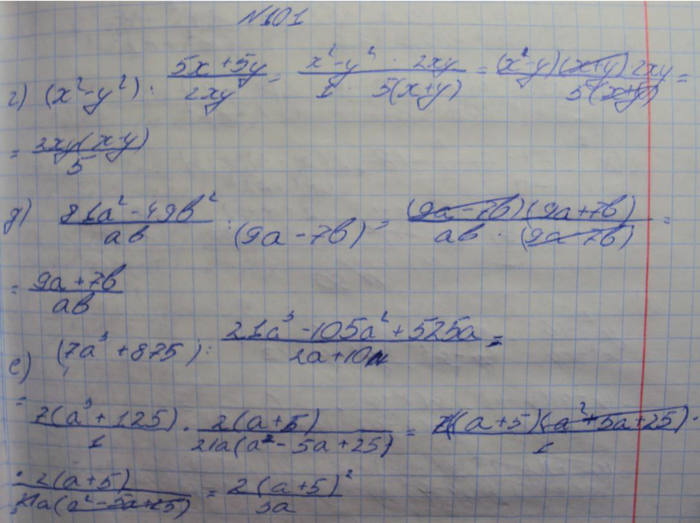 №101
г) (x²-y²) : (5x+5y)/(2xy) = (x²-y² · 2xy)/(1 · 5(x+y)) = ((x²-y)(x+y) · 2xy)/(5(x+y)) =
= (2xy(x-y))/5
д) (81a²-49b²)/(ab) : (9a-7b) = ((9a-7b)(9a+7b))/(ab · (9a-7b)) =
= (9a+7b)/(ab)
е) (7a³+875) : (21a³-105a²+525a)/(2a+10) =
= (7(a³+125))/1 · (2(a+5))/(21a(a²-5a+25)) = (7(a+5)(a²+5a+25))/1 ·
· (2(a+5))/(21a(a²-5a+25)) = (2(a+5)²)/(3a)